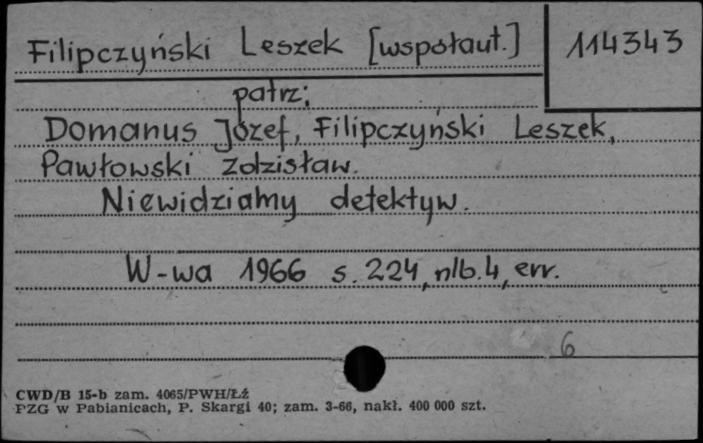 Filipczyński Leszek [współaut.]
114343
patrz:
Domanus Józef, Filipczyński Leszek,
Pawłowski Zdzisław.
Niewidzialny detektyw.
W-wa 1966 s. 224, nlb. 4, err.
6
CWD/B 15-b zam. 4065/PWH/Łź
PZG w Pabianicach, P. Skargi 40; zam. 3-66, nakł. 400 000 szt.